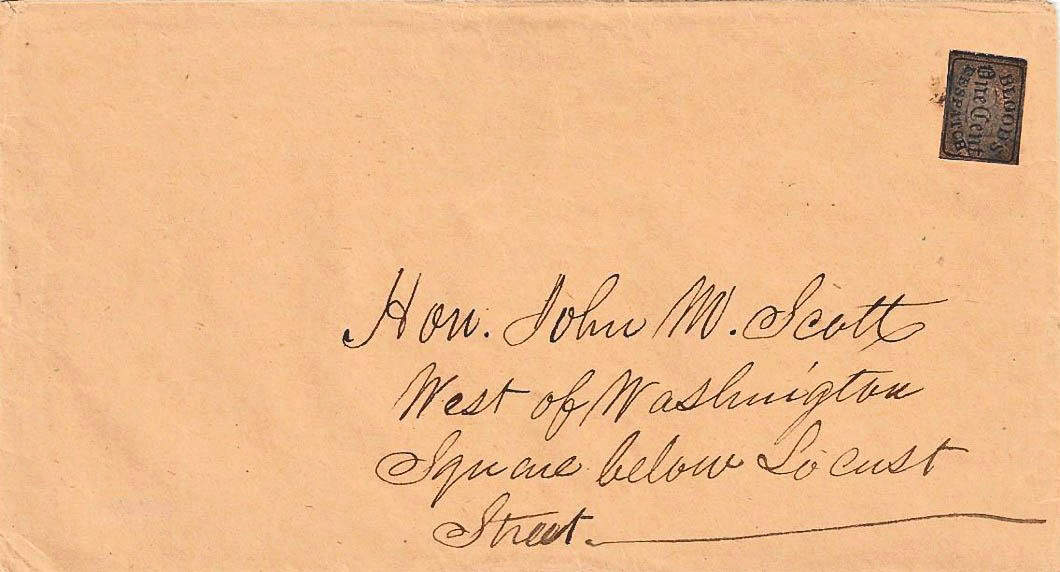 BLOOD'S
One Cent
DESPATCH
Hon. John M. Scott
West of Washington
Square below Locust
Street.